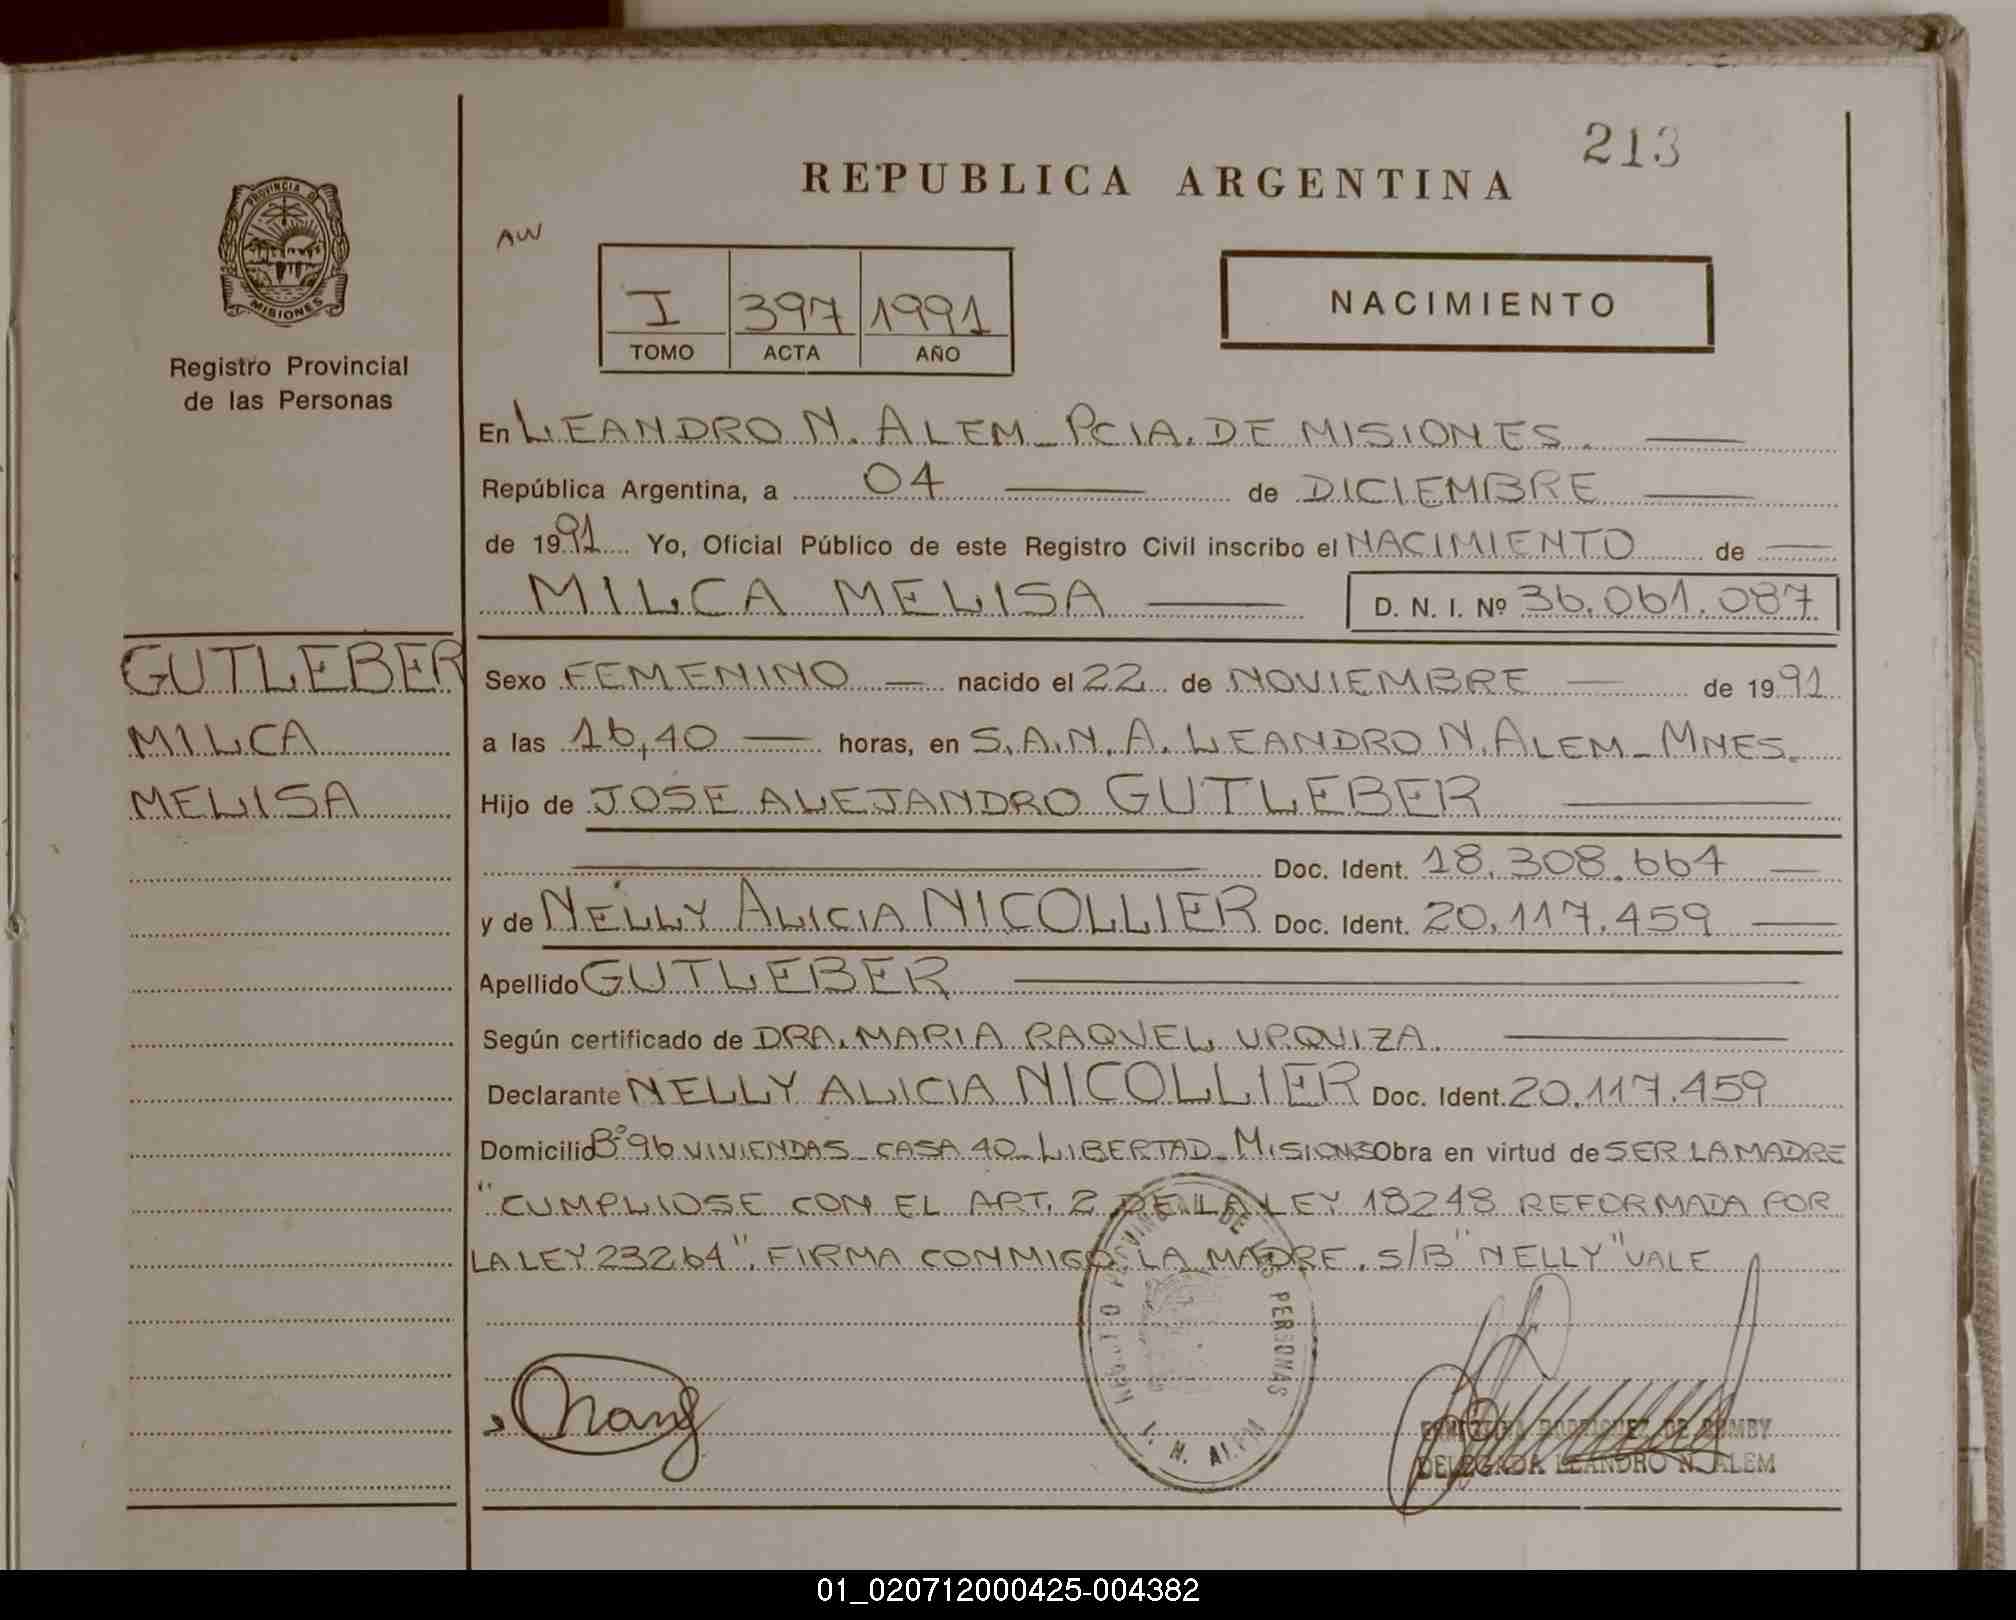 213
REPUBLICA ARGENTINA
AW
PROVINCIA DE
MISIONES
Registro Provincial
de las Personas
I 397 1991
TOMO ACTA AÑO
NACIMIENTO
En LEANDRO N. ALEM_PCIA. DE MISIONES.
República Argentina, a 04 de DICIEMBRE
de 1991 Yo, Oficial Público de este Registro Civil inscribo el NACIMIENTO de
MILCA MELISA D. N. I. Nº 36.061.087
GUTLEBER
MILCA
MELISA
Sexo FEMENINO nacido el 22 de NOVIEMBRE de 1991
a las 16,40 horas, en S.A.N.A. LEANDRO N. ALEM_MNES.
Hijo de JOSE ALEJANDRO GUTLEBER
Doc. Ident. 18.308.664
y de NELLY ALICIA NICOLLIER Doc. Ident. 20.117.459
Apellido GUTLEBER
Según certificado de DRA. MARIA RAQUEL URQUIZA
Declarante NELLY ALICIA NICOLLIER Doc. Ident. 20.117.459
Domicilio Bº 96 VIVIENDAS_CASA 40_LIBERTAD_MISIONES Obra en virtud de SER LA MADRE
"CUMPLIOSE CON EL ART. 2 DE LA LEY 18248 REFORMADA POR
LA LEY 23264". FIRMA CONMIGO LA MADRE. S/B "NELLY" VALE
DE LAS PERSONAS
L. N. ALEM
RODRIGUEZ DE
DELEGADA LEANDRO N. ALEM
01_020712000425-004382